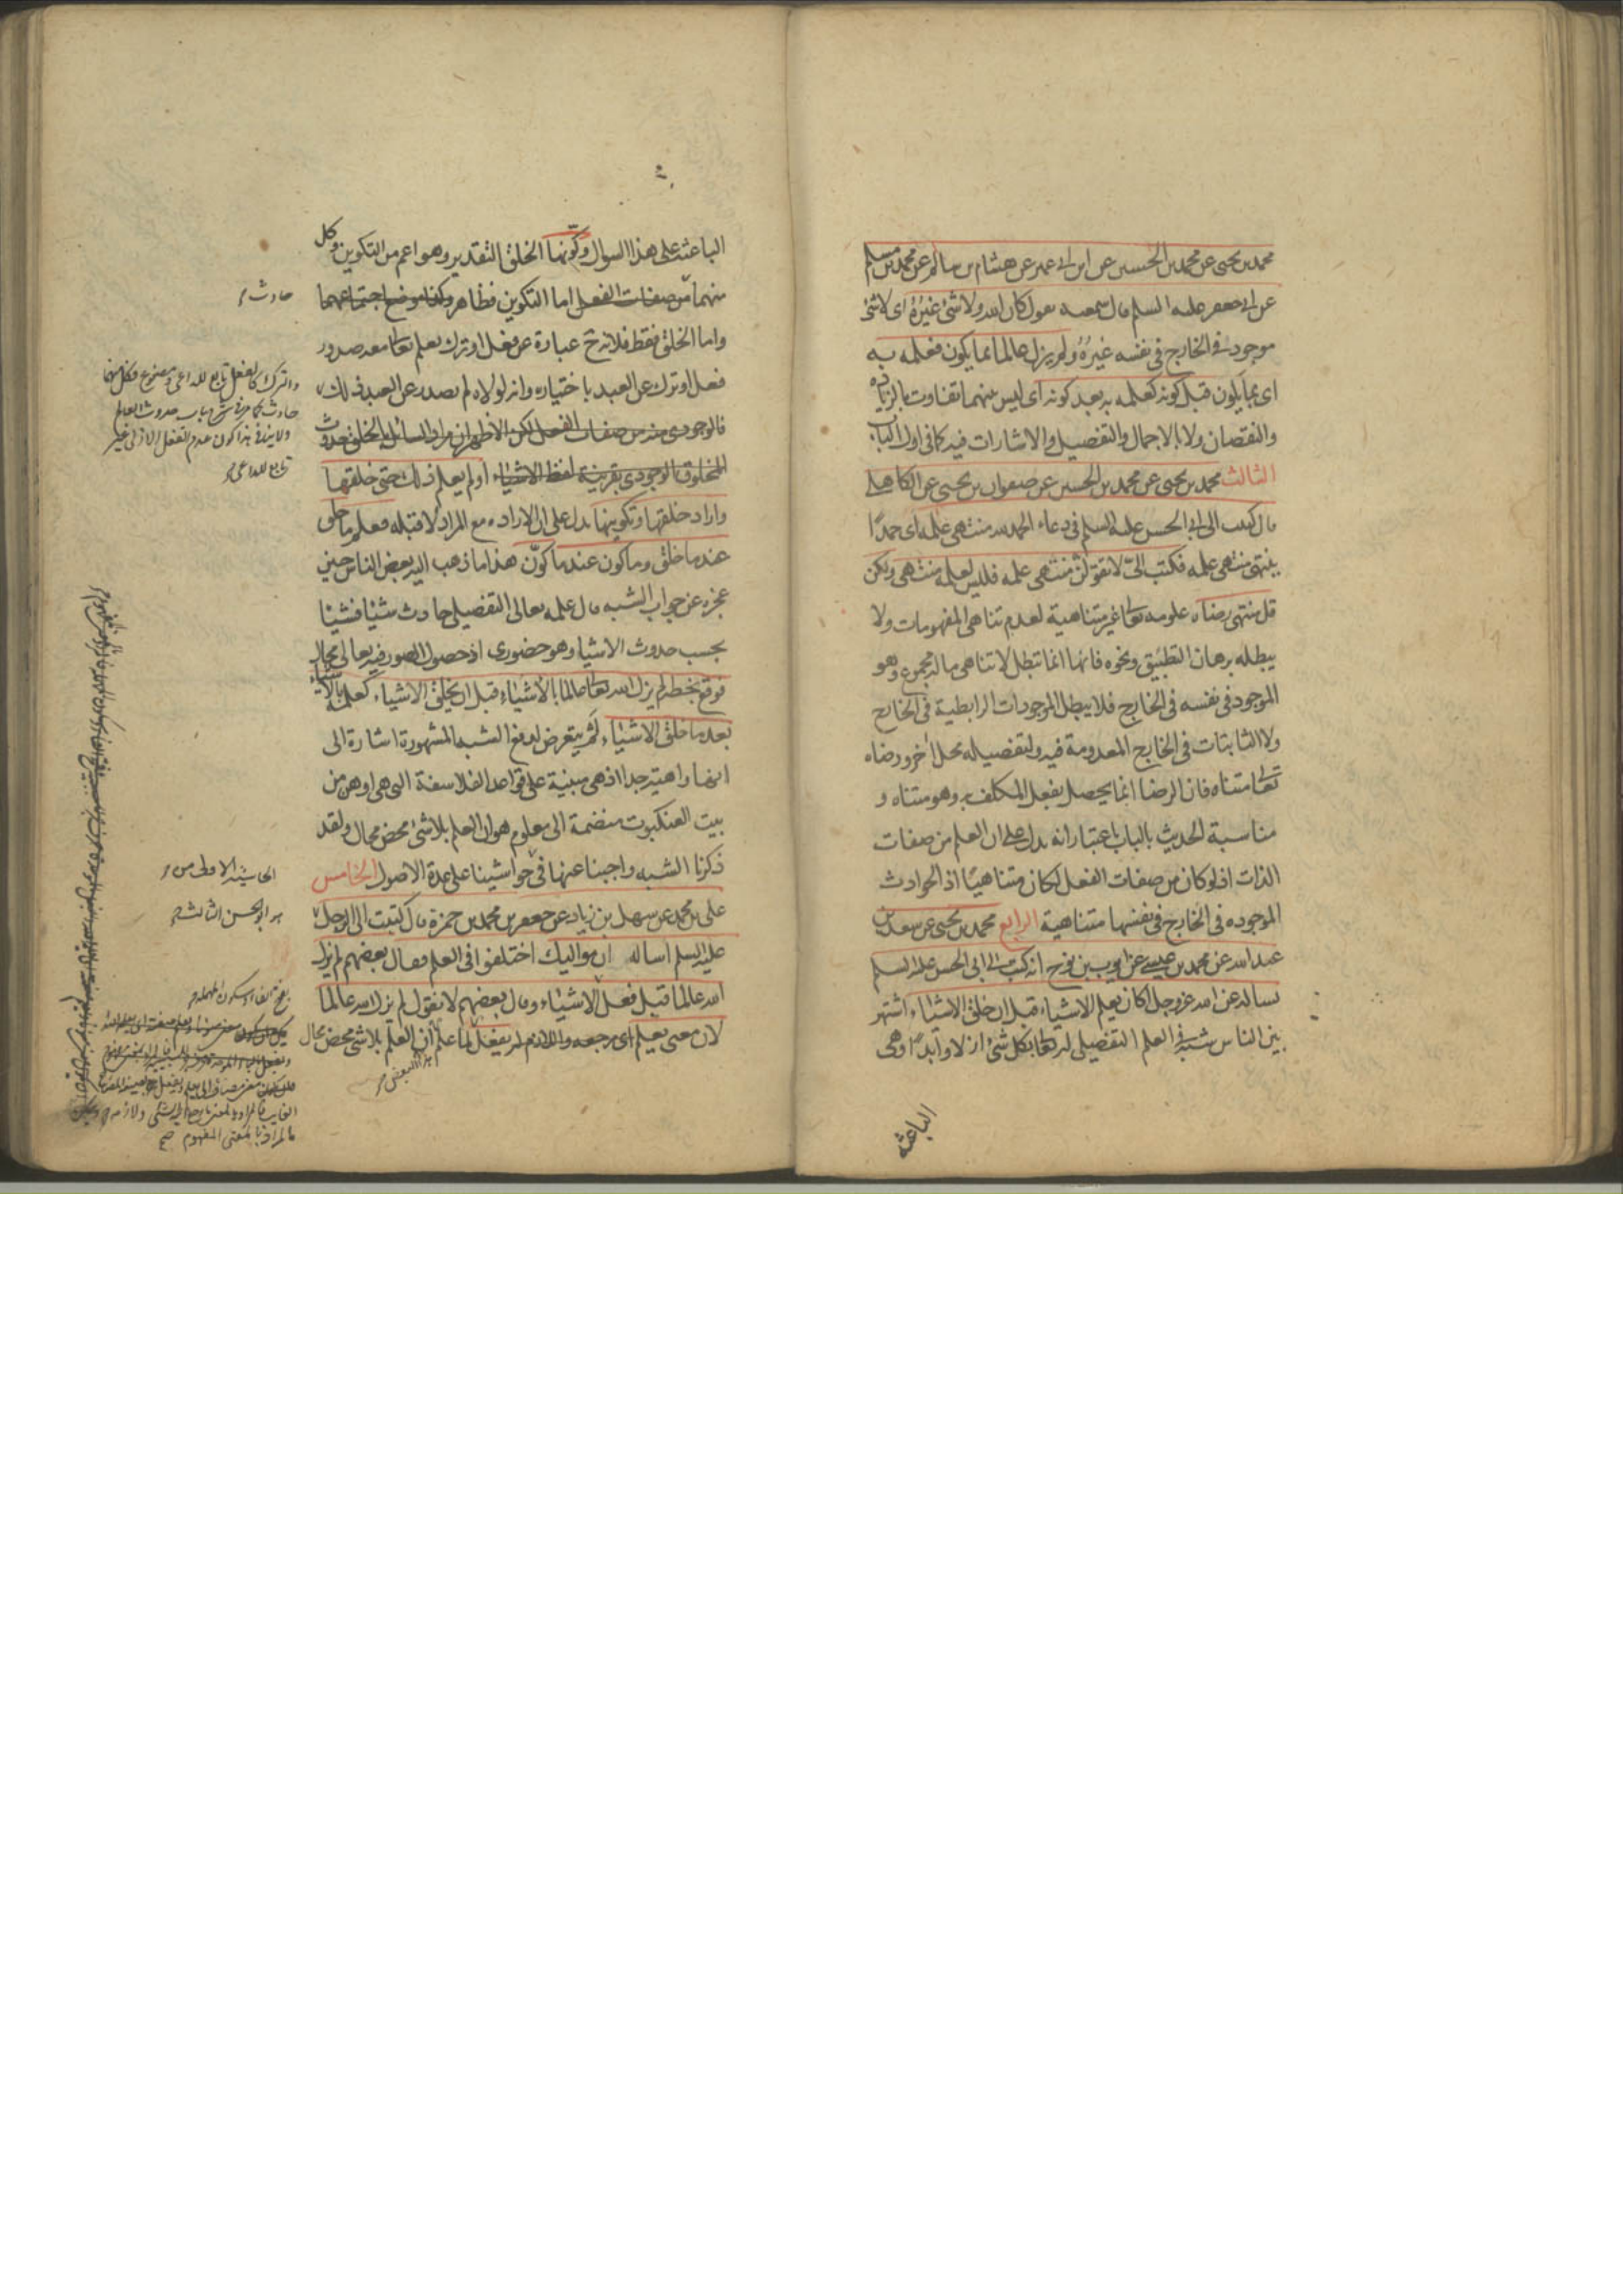 محمد بن يحيى عن محمد بن الحسين عن ابن ابى عمير عن هشام بن سالم عن محمد بن مسلم
عن ابى جعفر عليه السلم قال سمعته يقول كان الله ولا شئ غيره اى لا شئ
موجود فى الخارج فى نفسه غيره ولم يزل عالما بما يكون فعلمه به
اى بما يكون قبل كونه كعلمه به بعد كونه اى ليس بينهما تفاوت بالزيادة
والنقصان ولا بالاجمال والتفصيل والاشارات فيه كما فى اول الباب
الثالث محمد بن يحيى عن محمد بن الحسين عن صفوان بن يحيى عن الكاهلى
قال كتبت الى ابى الحسن عليه السلم فى دعاء الحمد لله منتهى علمه اى حمدًا
ينتهى منتهى علمه فكتب الىّ لا تقولن منتهى علمه فليس لعلمه منتهى ولكن
قل منتهى رضاه علومه تعا غير متناهية لعدم تناهى المفهومات ولا
يبطله برهان التطبيق ونحوه فانها انما تبطل لا تناهى ماله مجموع وهو
الموجود فى نفسه فى الخارج فلا يبطل الموجودات الرابطية فى الخارج
ولا الثابتات فى الخارج المعدومة فيه ولتفصيله محل اخر ورضاه
تعا متناه فان الرضا انما يحصل بفعل المكلف به وهو متناه و
مناسبة الحديث بالباب باعتبار انه يدل على ان العلم من صفات
الذات اذ لو كان من صفات الفعل لكان متناهيًا اذ الحوادث
الموجوده فى الخارج فى نفسها متناهية الرابع محمد بن يحيى عن سعد بن
عبد الله عن محمد بن عيسى عن ايوب بن نوح انه كتب الى ابى الحسن عليه السلم
يساله عن الله عز وجل اكان يعلم الاشياء قبل ان خلق الاشياء اشتهر
بين الناس شبهة فى العلم التفصيلى له تعا بكل شئ ازلا وابدا وهى
الباعثة
الباعثة على هذا السوال وكوّنها الخلق التقدير وهو اعم من التكوين وكل
منهما من صفات الفعل اما التكوين فظاهر وكذا موضع اجتماعهما
واما الخلق فقط فلانه ح عبارة عن فعل او ترك يعلم تعا معه صدور
فعل او ترك عن العبد باختياره وانه لولاه لم يصدر عن العبد ذلك
فالوجودى منه من صفات الفعل لكن الاظهر ان مراد السائل بالخلق حدوث
المخلوق الوجودى بقرينة لفظ الاشياء او لم يعلم ذلك حتى خلقها
واراد خلقها وتكوينها يدل على ان الارادة مع المراد لا قبله فعلم ما خلق
عند ما خلق وما كون عند ما كوّن هذا ما ذهب اليه بعض الناس حين
عجزه عن جواب الشبه قال علمه تعالى التفصيلى حادث شيئا فشيئا
بحسب حدوث الاشياء وهو حضورى اذ حصول الصور فيه تعالى محال
فوقع بخطه لم يزل الله تعا عالما بالاشياء قبل ان يخلق الاشياء كعلمه بالاشياء
بعد ما خلق الاشياء لم يتعرض لدفع الشبه المشهورة اشارة الى
انها واهية جدا اذ هى مبنية على قواعد الفلاسفة التى هى اوهن من
بيت العنكبوت منضمة الى معلوم هو ان العلم بلا شئ محض محال ولقد
ذكرنا الشبه واجبنا عنها فى حواشينا على عدة الاصول الخامس
على بن محمد عن سهل بن زياد عن جعفر بن محمد بن حمزة قال كتبت الى الرجل
عليه السلم اساله ان مواليك اختلفوا فى العلم فقال بعضهم لم يزل
الله عالما قبل فعل الاشياء وقال بعضهم لا نقول لم يزل الله عالما
لان معنى يعلم اى مرجعه واللازم له يفعل لما علم ان العلم بلا شئ محض محال
هذا البعض
حادث
والترك كالفعل تابع للداعى
حادث كما مر فى شرح باب حدوث العالم
ولا ينافى هذا كون عدم الفعل الازلى غير
تابع للداعى
الحاشية الاولى منه
هو ابو الحسن الثالث
فالمراد بالمعنى المفهوم صح